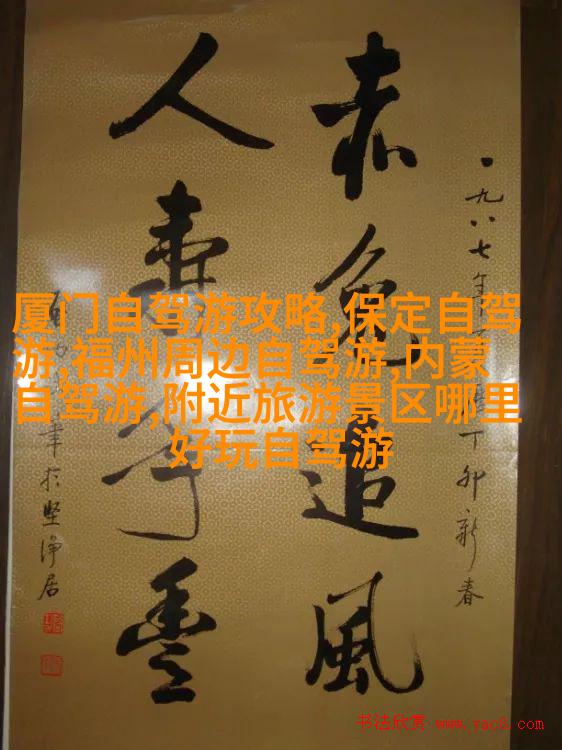 厦门自驾游攻略,保定自驾
游,福州周边自驾游,内蒙
自驾游,附近旅游景区哪里
好玩自驾游
一九八七年
丁卯新春
赤兔追風
人壽年豐
於堅淨居
书法欣赏 www.yac8.com